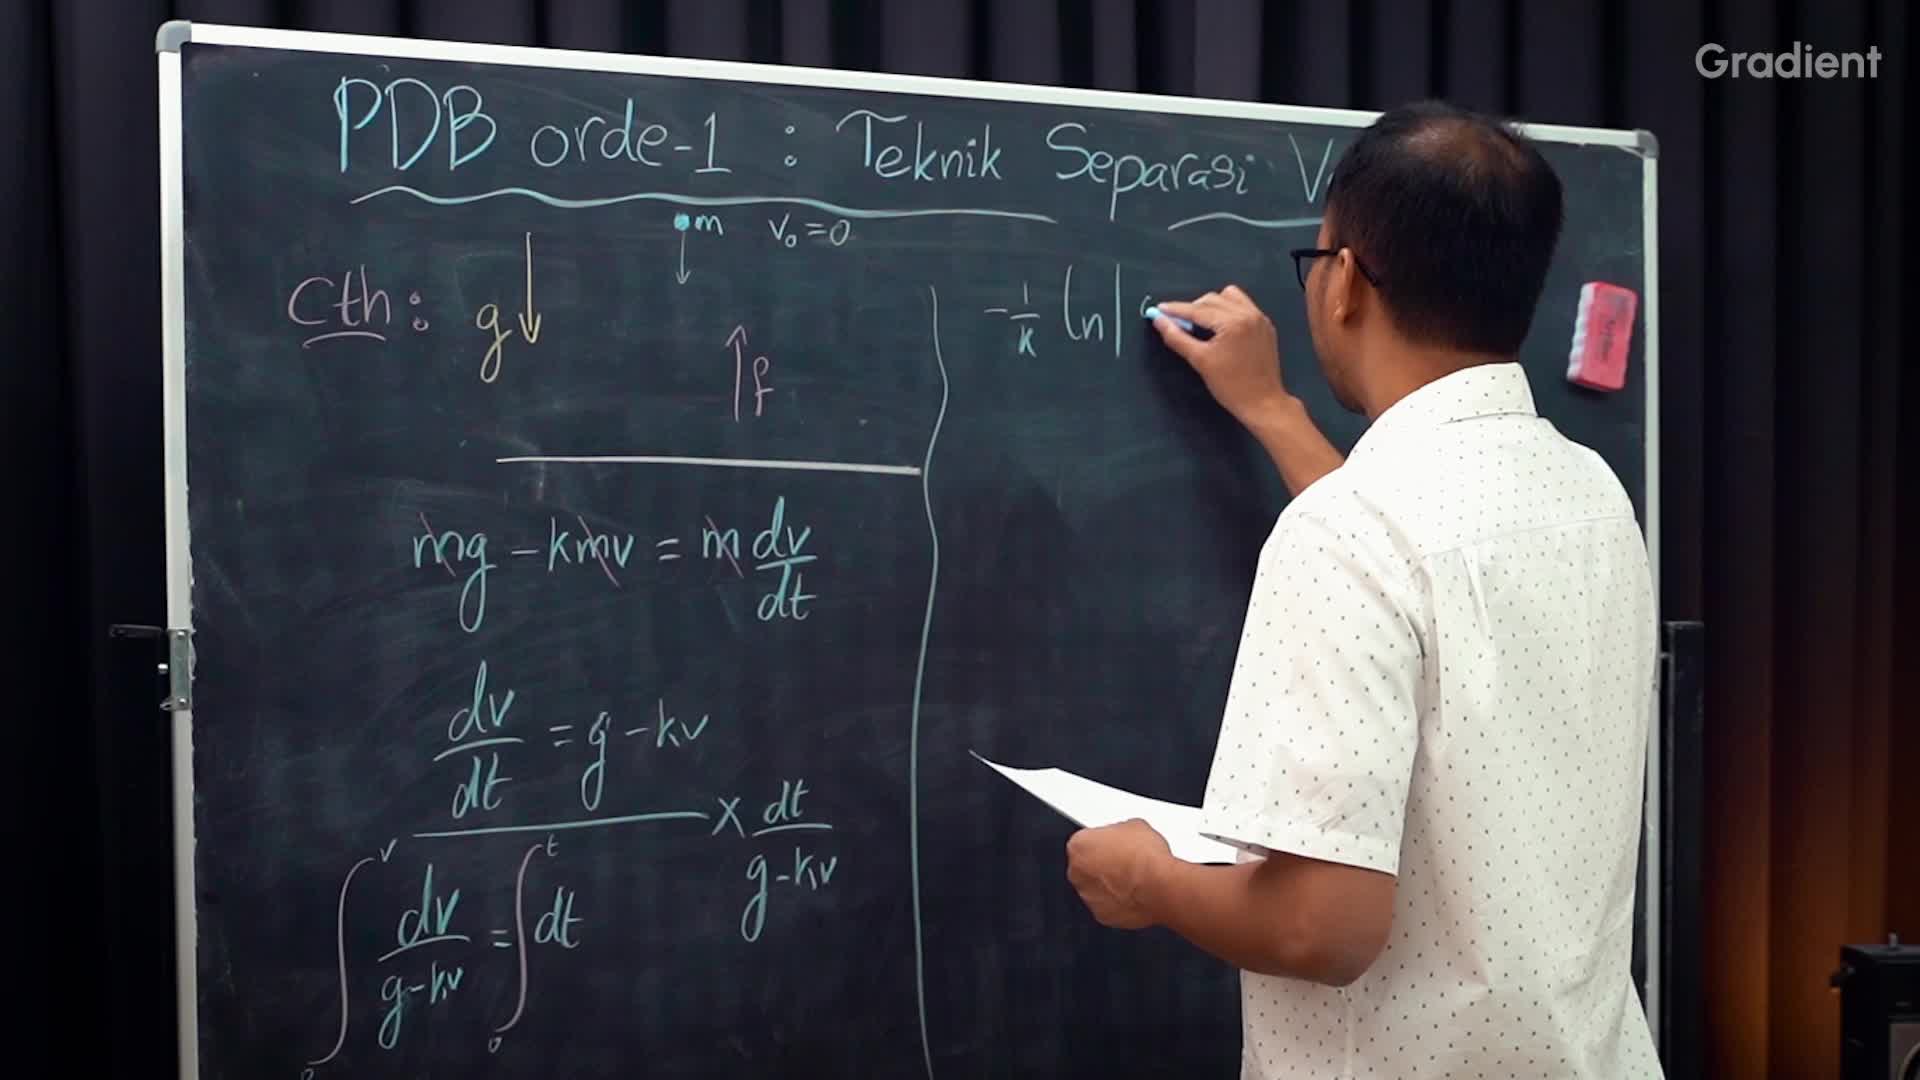 Gradient
PDB orde-1 : Teknik Separasi
m v₀ = 0
Cth : g
f
mg - kmv = m dv/dt
dv/dt = g - kv
× dt/(g - kv)
∫₀ᵛ dv/(g - kv) = ∫₀ᵗ dt
-1/k ln |